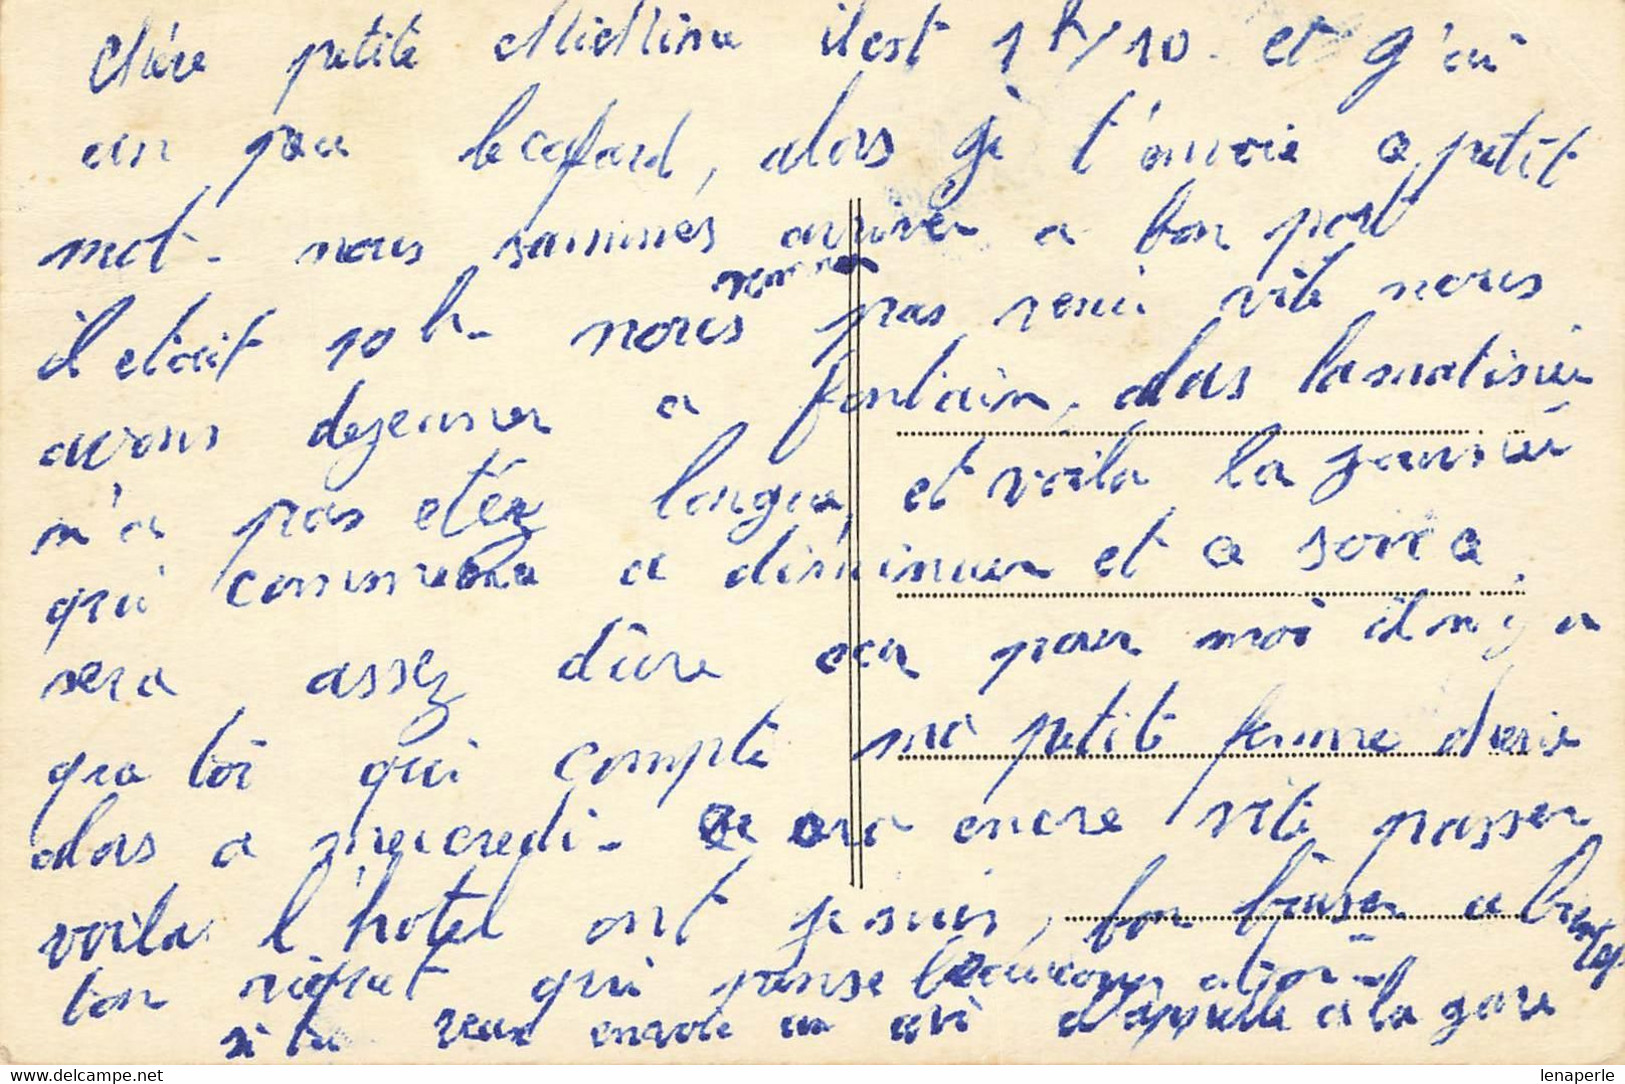 Chère petite MicMine il est 1h/10. et g'ai
un peu le cafard, alors je t'envoie a petit
mot. nous sommes arriver a bon port
il etait 10h. nous pas venir vite nous
sommes
avons dejeuner a fontain, alas la matinier
n'a pas etéz longue, et voila la journier
qui commence a diminuer et ce soir ca
sera assez dure car pour moi il n y a
que toi qui compte ma petit femme cherie
alors a mercredi. Ce sera encre vite passer
voila l'hotel ont je suis, bon baiser a bientot
ton riquet qui panse beaucoup a toi
si tu veux envoie un avi d'appelle a la gare
lenaperle